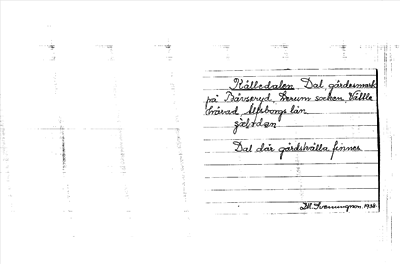 Källedalen Dal, gårdesmark
på Bärseryd, Lerum socken, Vättle
härad, Älvsborgs län.
gärden
Dal där gårdskälla finnes
Svenningson. 1938.